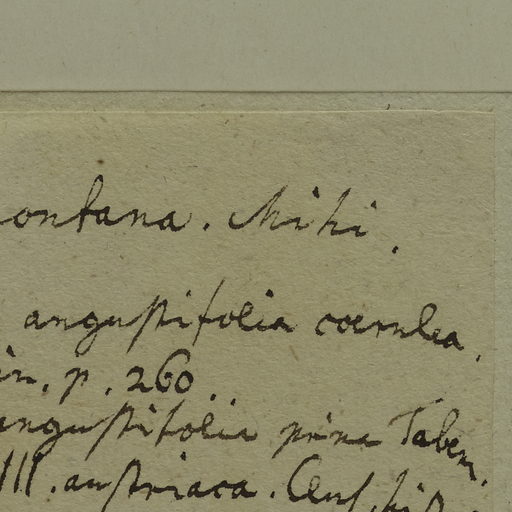 ontana. Mihi.
angustifolia coerulea.
in. p. 260.
angustifolia prima Tabern.
III. austriaca. Clus. hist.